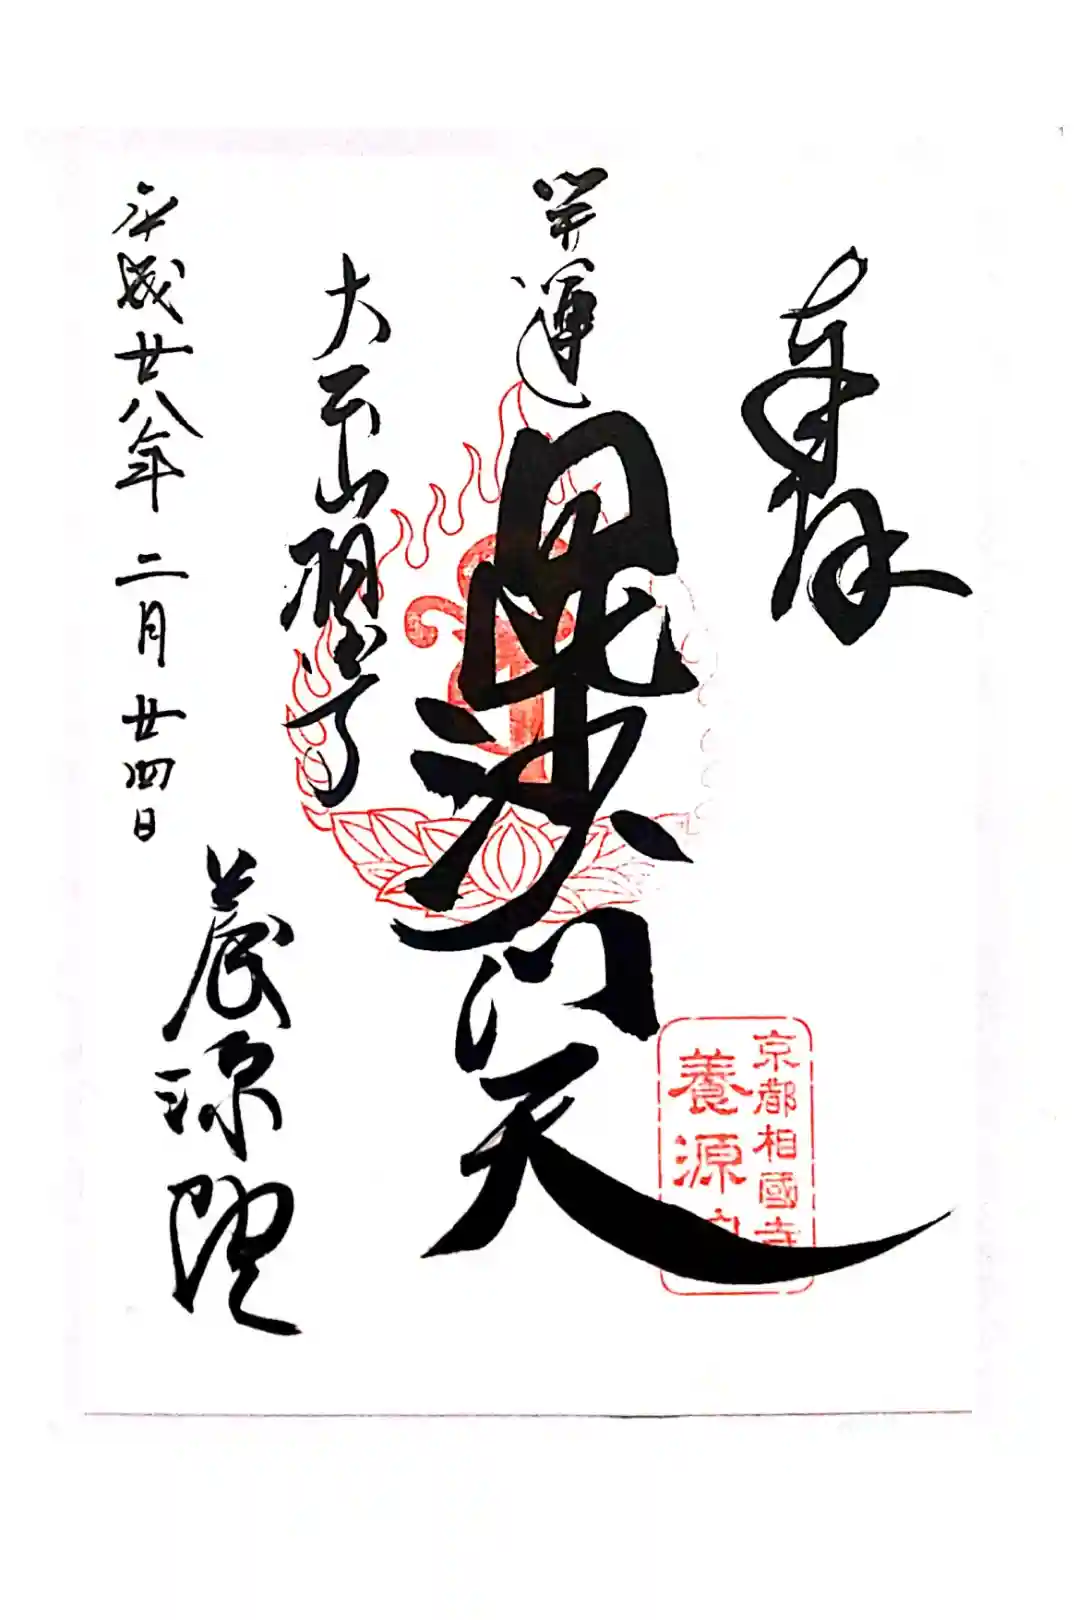 奉拝
開運
毘沙門天
京都相國寺
養源
大雲山 寺
平成廿八年二月廿四日
養源院